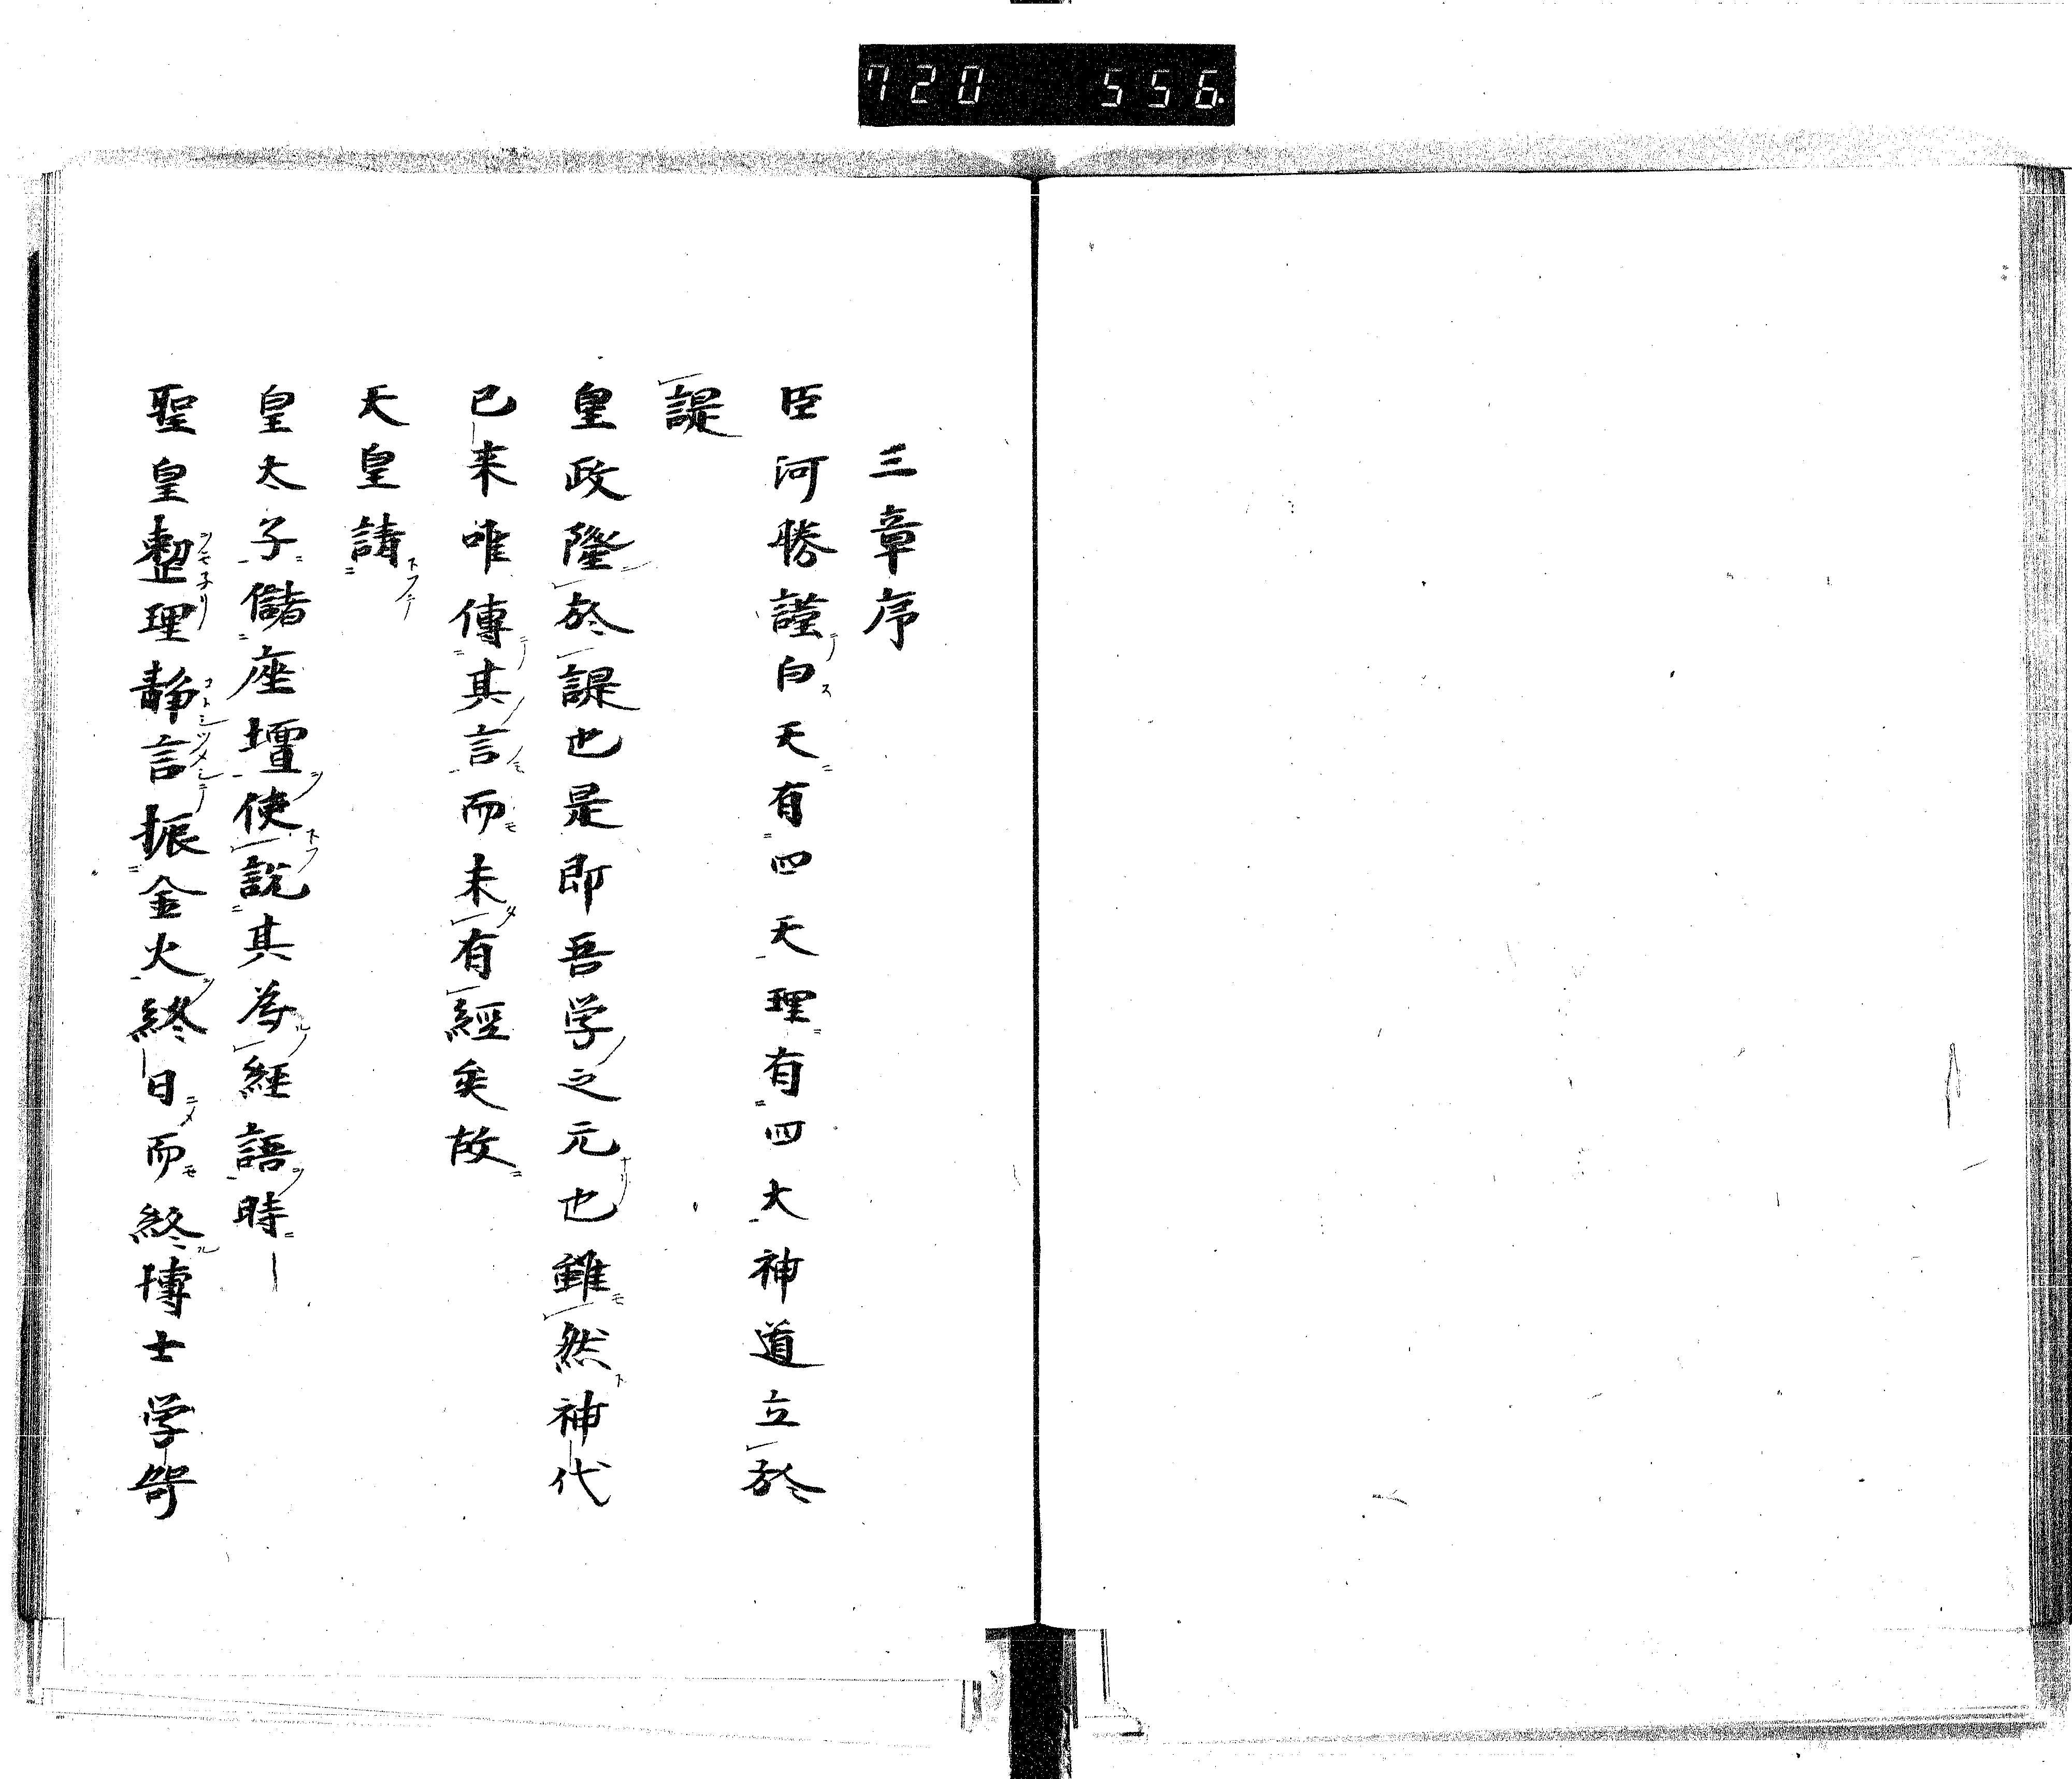 720 556
三章序
臣河勝謹白天有四天理有四大神道立於
諟
皇政隆於諟也是即吾学之元也雖然神代
已来唯傳其言而未有經矣故
天皇請
皇太子儲座壇使説其為經語時
聖皇整理静言振金火終日而終博士学哿